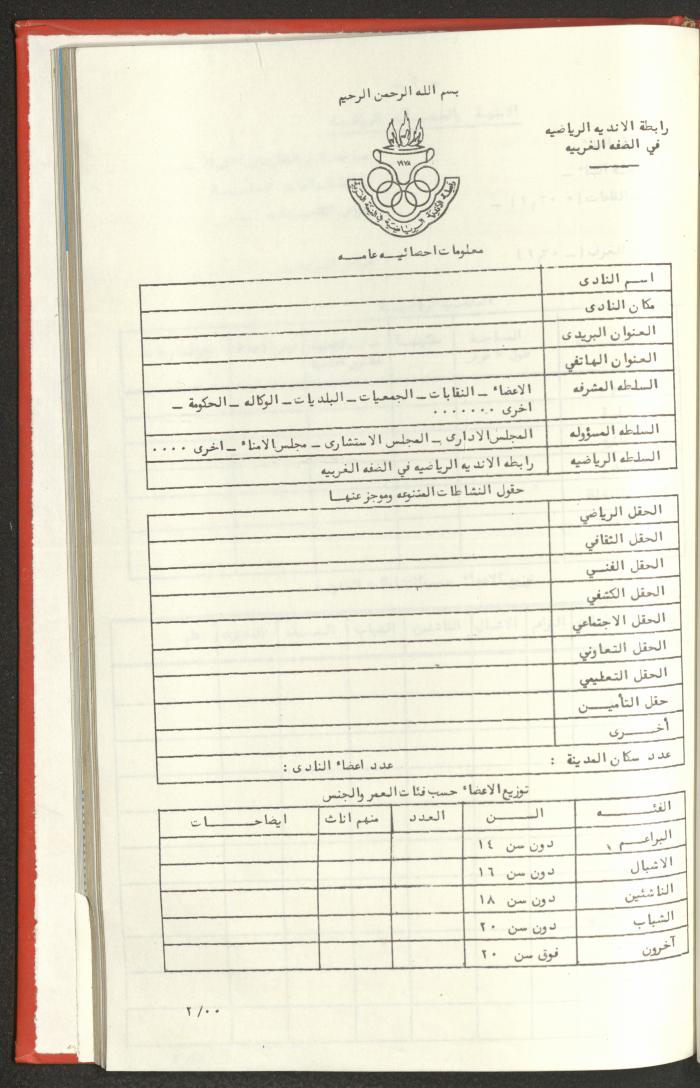 بسم الله الرحمن الرحيم
رابطة الانديه الرياضيه
في الضفه الغربيه
١٩٧٨
رابطة الأندية الرياضية في الضفة الغربية
معلومات احصائيــه عامــه
اسـم النادى
مكان النادى
العنوان البريدى
العنوان الهاتفي
السلطه المشرفه
الاعضاء ــ النقابات ــ الجمعيات ــ البلديات ــ الوكاله ــ الحكومة ــ
اخرى ٠٠٠٠٠٠٠
السلطه المسؤوله
المجلس الادارى ــ المجلس الاستشارى ــ مجلس الامناء ــ اخرى ٠٠٠٠
السلطه الرياضيه
رابطه الانديه الرياضيه في الضفه الغربيه
حقول النشاطات المتنوعه وموجز عنهـا
الحقل الرياضي
الحقل الثقافي
الحقل الفنـي
الحقل الكشفي
الحقل الاجتماعي
الحقل التعاوني
الحقل التعليمي
حقل التأميــن
أخـــرى
عدد سكان المدينة :
عدد اعضاء النادى :
توزيع الاعضاء حسب فئات العمر والجنس
الفئـــــه
الســـن
العدد
منهم اناث
ايضاحـــــات
البراعـم
دون سن ١٤
الاشبال
دون سن ١٦
الناشئين
دون سن ١٨
الشباب
دون سن ٢٠
آخرون
فوق سن ٢٠
٢/٠٠